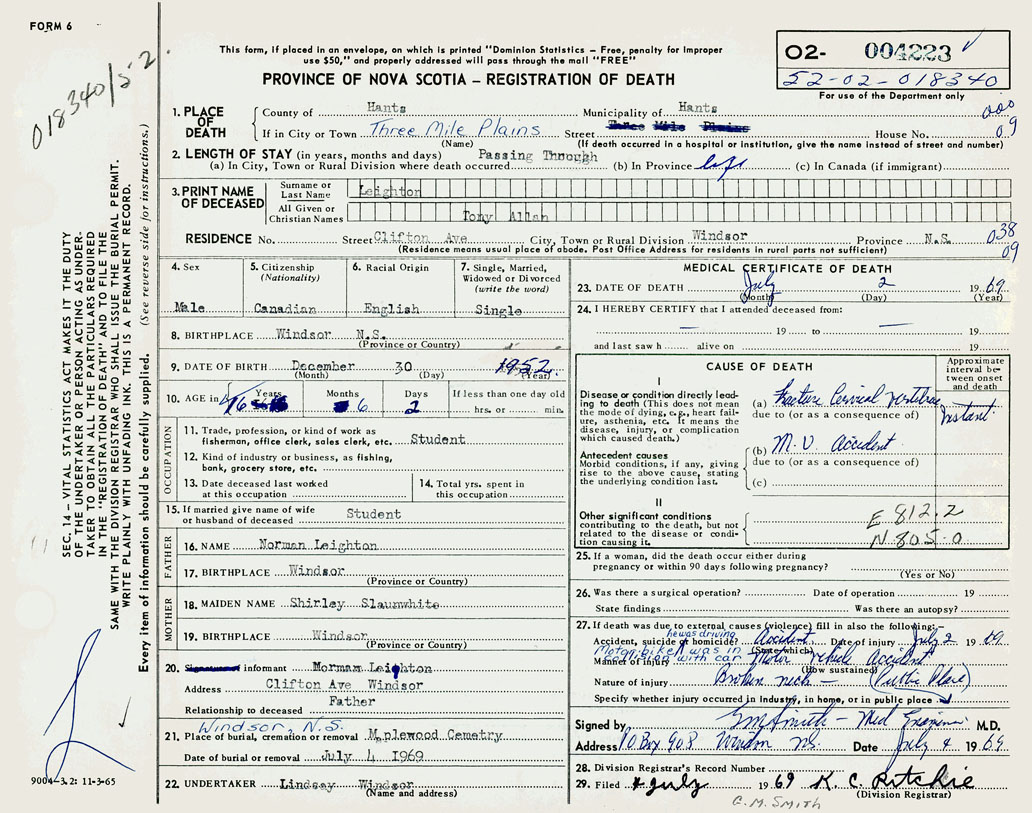 FORM 6
018340/5-2
This form, if placed in an envelope, on which is printed "Dominion Statistics – Free, penalty for improper
use $50," and properly addressed will pass through the mail "FREE"
PROVINCE OF NOVA SCOTIA – REGISTRATION OF DEATH
02- 004223 ✓
52-02-018340
For use of the Department only
SEC. 14 – VITAL STATISTICS ACT MAKES IT THE DUTY
OF THE UNDERTAKER OR PERSON ACTING AS UNDER-
TAKER TO OBTAIN ALL THE PARTICULARS REQUIRED
IN THE "REGISTRATION OF DEATH" AND TO FILE THE
SAME WITH THE DIVISION REGISTRAR WHO SHALL ISSUE THE BURIAL PERMIT.
WRITE PLAINLY WITH UNFADING INK. THIS IS A PERMANENT RECORD.
Every item of information should be carefully supplied. (See reverse side for instructions.)
1. PLACE OF DEATH
County of Hants Municipality of Hants
If in City or Town Three Mile Plains Street Three Mile Plains House No. 09
(Name) (If death occurred in a hospital or institution, give the name instead of street and number)
2. LENGTH OF STAY (in years, months and days) Passing Through
(a) In City, Town or Rural Division where death occurred (b) In Province life (c) In Canada (if immigrant)
3. PRINT NAME OF DECEASED
Surname or Last Name Leighton
All Given or Christian Names Tony Allan
RESIDENCE No. Street Clifton Ave City, Town or Rural Division Windsor Province N.S. 038
09
(Residence means usual place of abode. Post Office Address for residents in rural parts not sufficient)
4. Sex 5. Citizenship (Nationality) 6. Racial Origin 7. Single, Married, Widowed or Divorced (write the word)
Male Canadian English Single
8. BIRTHPLACE Windsor N.S.
(Province or Country)
9. DATE OF BIRTH December 30 1952
(Month) (Day) (Year)
10. AGE in Years Months Days If less than one day old
16 6 2 hrs. or min.
OCCUPATION
11. Trade, profession, or kind of work as
fisherman, office clerk, sales clerk, etc. Student
12. Kind of industry or business, as fishing,
bank, grocery store, etc.
13. Date deceased last worked
at this occupation
14. Total yrs. spent in
this occupation
15. If married give name of wife
or husband of deceased Student
FATHER
16. NAME Norman Leighton
17. BIRTHPLACE Windsor
(Province or Country)
MOTHER
18. MAIDEN NAME Shirley Slaunwhite
19. BIRTHPLACE Windsor
(Province or Country)
20. informant Norman Leighton
Address Clifton Ave Windsor
Relationship to deceased Father
Windsor, N.S.
21. Place of burial, cremation or removal Maplewood Cemetry
Date of burial or removal July 4 1969
22. UNDERTAKER Lindsay Windsor
(Name and address)
9004-3.2: 11-3-65
MEDICAL CERTIFICATE OF DEATH
23. DATE OF DEATH July 2 1969
(Month) (Day) (Year)
24. I HEREBY CERTIFY that I attended deceased from:
— 19 to — 19
and last saw h alive on 19
CAUSE OF DEATH
Approximate interval between onset and death
I
Disease or condition directly lead-
ing to death (This does not mean
the mode of dying, e.g., heart fail-
ure, asthenia, etc. It means the
disease, injury, or complication
which caused death.)
(a) Fracture Cervical vertebrae Instant
due to (or as a consequence of)
Antecedent causes
Morbid conditions, if any, giving
rise to the above cause, stating
the underlying condition last.
(b) M.V Accident
due to (or as a consequence of)
(c)
II
Other significant conditions
contributing to the death, but not
related to the disease or condi-
tion causing it.
E 812.2
N 805.0
25. If a woman, did the death occur either during
pregnancy or within 90 days following pregnancy?
(Yes or No)
26. Was there a surgical operation? Date of operation 19
State findings Was there an autopsy?
27. If death was due to external causes (violence) fill in also the following:–
he was driving
Accident, suicide or homicide? Accident Date of injury July 2 1969
(State which)
Motor bike was in
Manner of injury with car Motor vehicle Accident
(How sustained)
Nature of injury Broken neck – (Public Place)
Specify whether injury occurred in Industry, in home, or in public place
Signed by GM Smith – Med Examiner M.D.
Address PO Box 908 Windsor NS. Date July 4 1969
28. Division Registrar's Record Number
29. Filed 4 July 1969 K. C. Ritchie
(Division Registrar)
G. M. SMITH